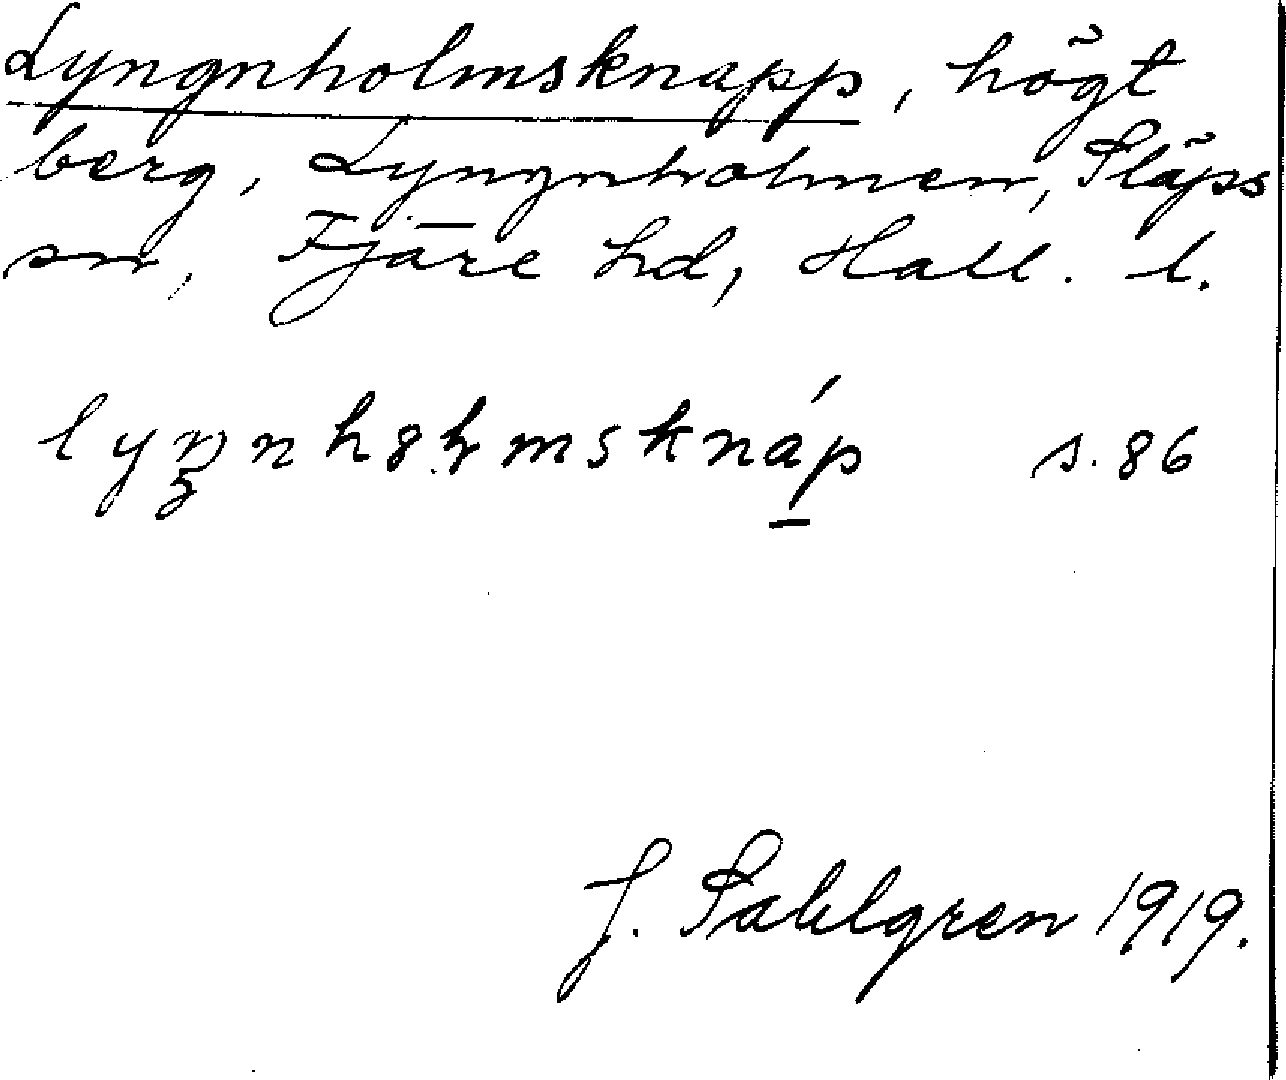 Lyngnholmsknapp, högt
berg, Lyngnholmen, Släps
sn, Fjäre hd, Hall. l.
s. 86
J. Sahlgren 1919.